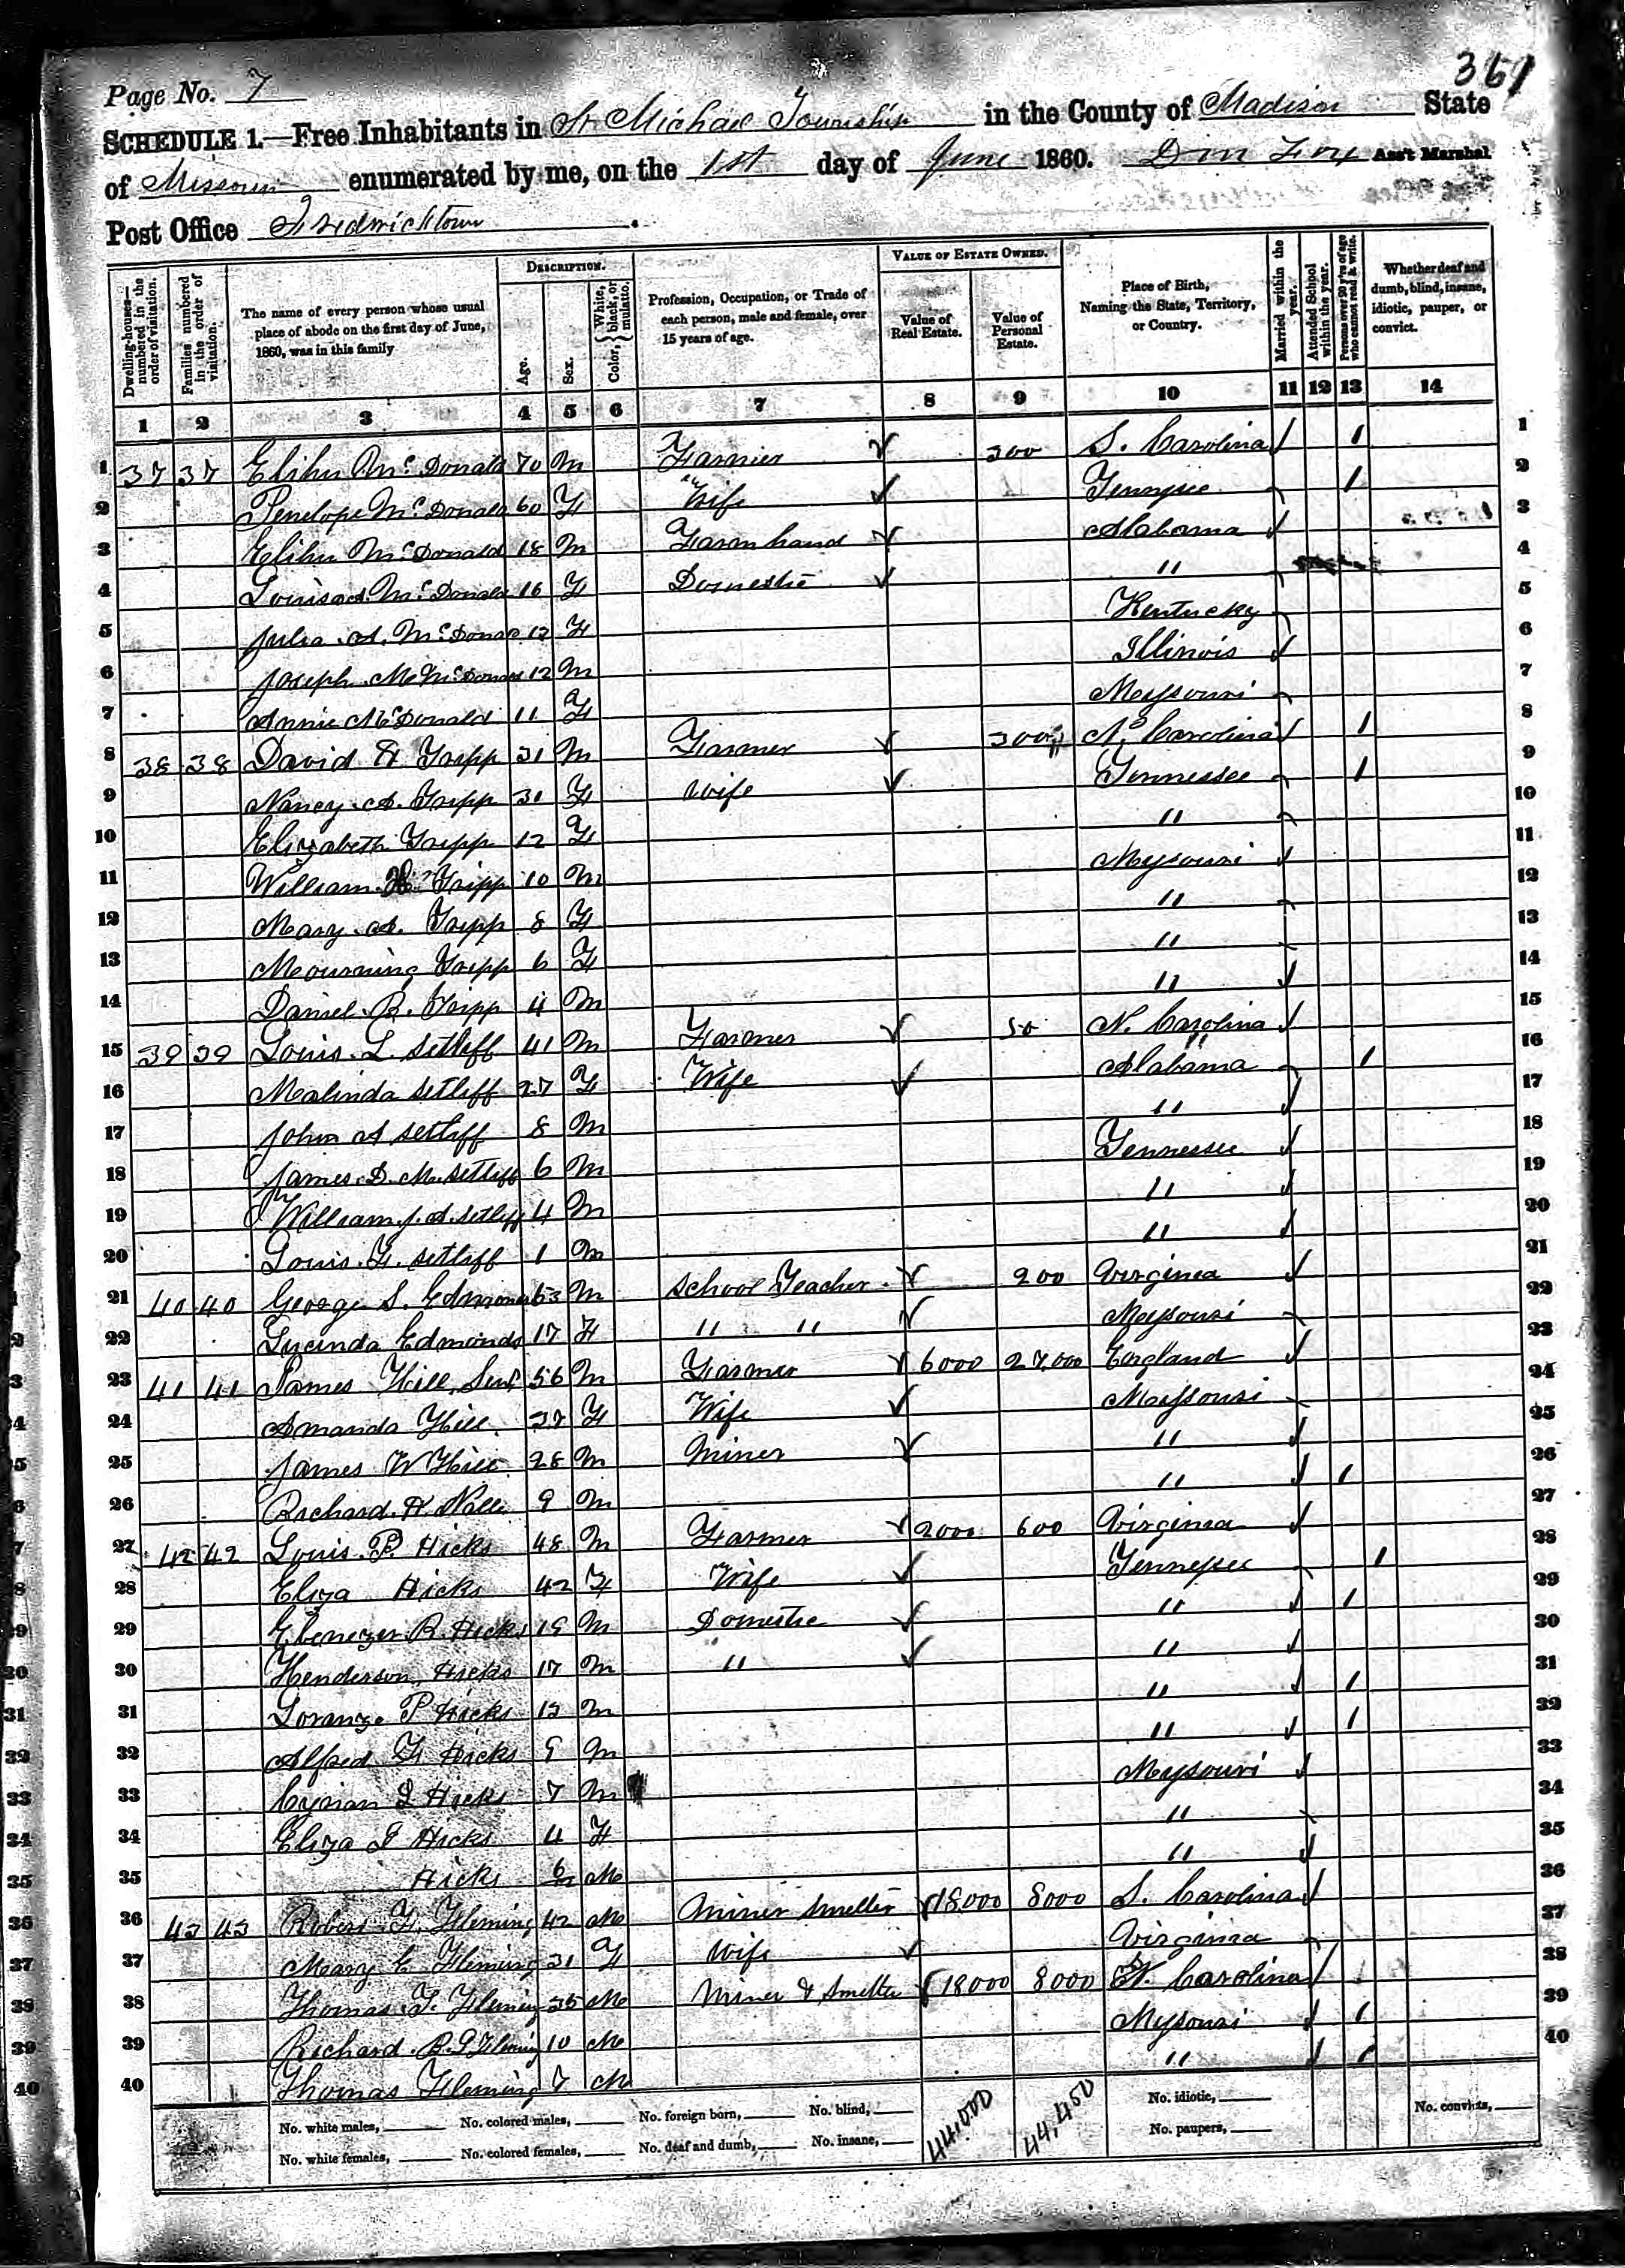 361
Page No. 7
SCHEDULE 1.—Free Inhabitants in St Michael Township in the County of Madison State
of Missouri enumerated by me, on the 1st day of June 1860. Ass't Marshal
Post Office Fredricktown.
Dwelling-houses—numbered in the order of visitation.
Families numbered in the order of visitation.
The name of every person whose usual place of abode on the first day of June, 1860, was in this family
DESCRIPTION.
Age.
Sex.
Color, { White, black, or mulatto.
Profession, Occupation, or Trade of each person, male and female, over 15 years of age.
VALUE OF ESTATE OWNED.
Value of Real Estate.
Value of Personal Estate.
Place of Birth, Naming the State, Territory, or Country.
Married within the year.
Attended School within the year.
Persons over 20 y'rs of age who cannot read & write.
Whether deaf and dumb, blind, insane, idiotic, pauper, or convict.
1 2 3 4 5 6 7 8 9 10 11 12 13 14
1 37 37 Elihu McDonald 70 M Farmer 300 S. Carolina / 1 1
2 Penelope McDonald 60 F Wife Tennessee 1 2
3 Elihu McDonald 18 M Farm hand Alabama 3
4 Louisa A. McDonald 16 F Domestic " 4
5 Julia A. McDonald 12 F Kentucky 5
6 Joseph M McDonald 12 M Illinois 6
7 Annie McDonald 11 F Missouri 7
8 38 38 David H Tripp 31 M Farmer 300 N. Carolina 1 8
9 Nancy A. Tripp 31 F Wife Tennessee 1 9
10 Elizabeth Tripp 12 F " 10
11 William H. Tripp 10 M Missouri 11
12 Mary A. Tripp 8 F " 12
13 Mourning Tripp 6 F " 13
14 Daniel B. Tripp 4 M " 14
15 39 39 Louis L. Setliff 41 M Farmer 50 N. Carolina 15
16 Malinda Setliff 27 F Wife Alabama 1 16
17 John A Setliff 8 M " 17
18 James D. M. Setliff 6 M Tennessee 18
19 William J. A. Setliff 4 M " 19
20 Louis F. Setliff 1 M " 20
21 40 40 George S. Edmonds 63 M School Teacher 200 Virginia 21
22 Lucinda Edmonds 17 F " " Missouri 22
23 41 41 James Hill, Senr 56 M Farmer 6000 27,000 England 23
24 Amanda Hill 37 F Wife Missouri 24
25 James W Hill 28 M Miner " 25
26 Richard H. Nalle 9 M " 1 26
27 42 42 Louis P. Hicks 48 M Farmer 2000 600 Virginia 27
28 Eliza Hicks 42 F Wife Tennessee 1 28
29 Ebenezer R. Hicks 19 M Domestic " 1 29
30 Henderson Hicks 17 M " " 30
31 Loranzo P Hicks 13 M " 1 31
32 Alfred F Hicks 9 M " 1 32
33 Cyrian L Hicks 7 M Missouri 33
34 Eliza J Hicks 4 F " 34
35 Hicks 6/12 M " 35
36 43 43 Robert F. Fleming 42 M Miner Smelter 18000 8000 S. Carolina 36
37 Mary C Fleming 31 F Wife Virginia 37
38 Thomas F. Fleming 35 M Miner & Smelter 18000 8000 N. Carolina 38
39 Richard B. P Fleming 10 M Missouri 1 39
40 Thomas Fleming 7 M " 1 40
No. white males, No. colored males, No. foreign born, No. blind, 44,000 44,450 No. idiotic, No. convicts,
No. white females, No. colored females, No. deaf and dumb, No. insane, No. paupers,